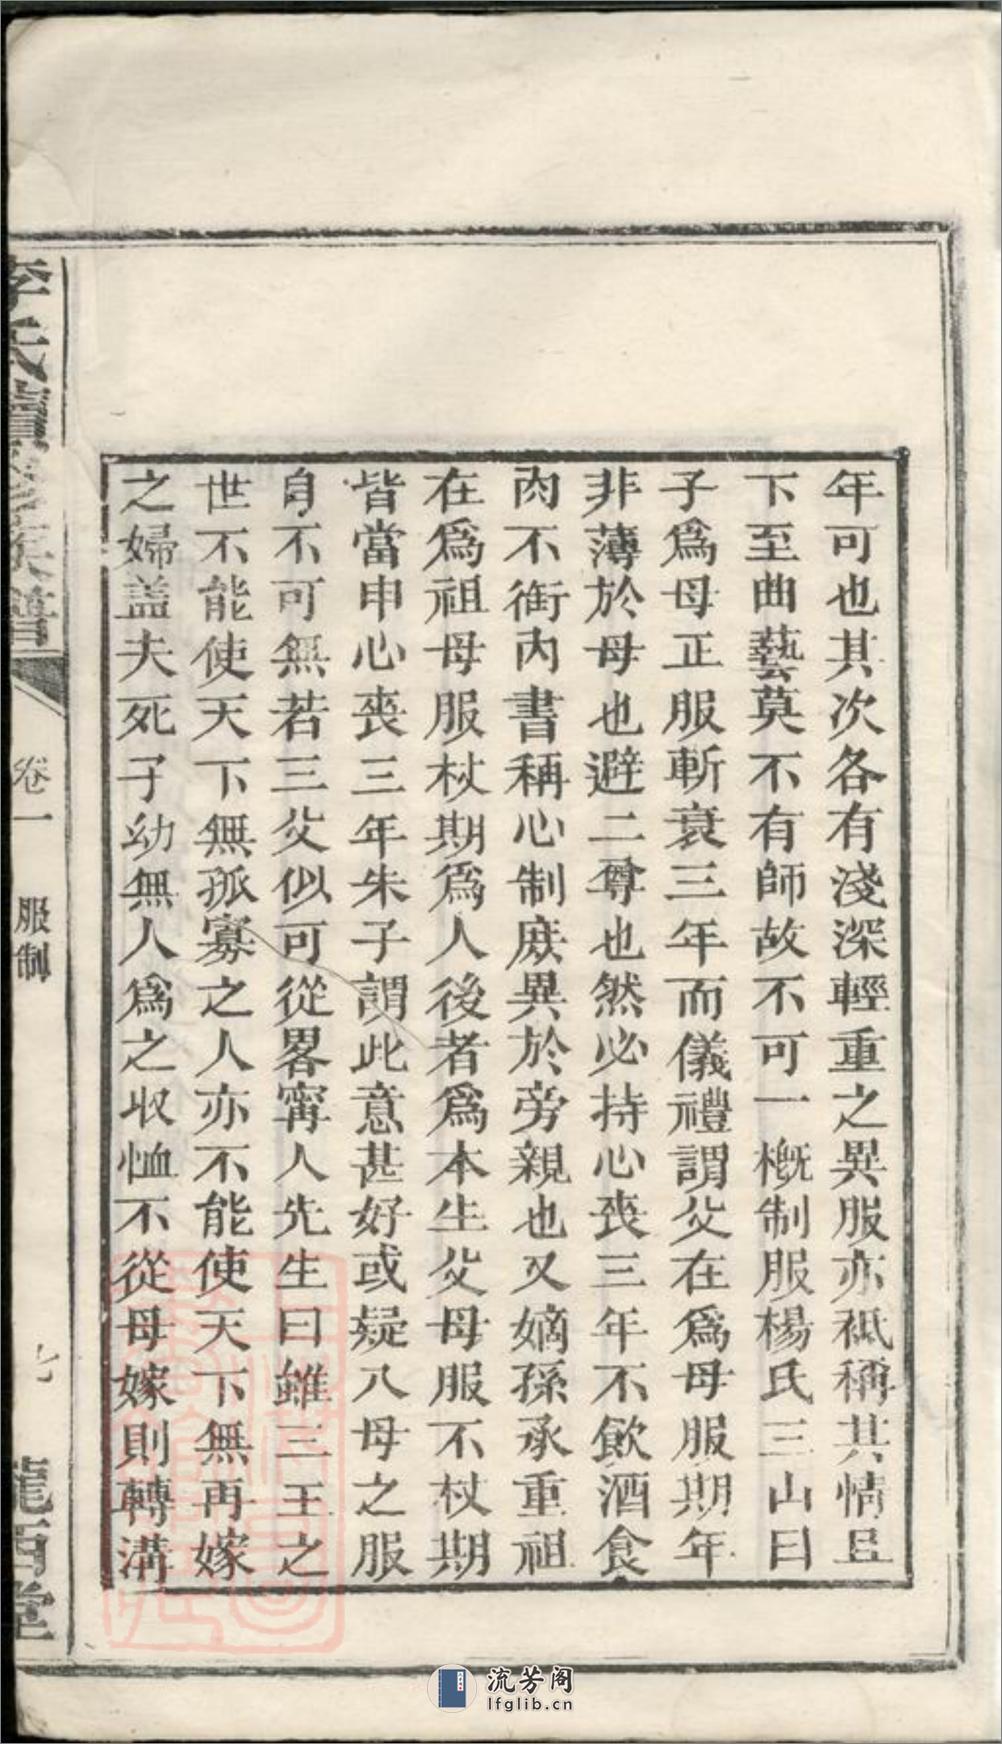 年可也其次各有淺深輕重之異服亦祗稱其情且
下至曲藝莫不有師故不可一槪制服楊氏三山曰
子爲母正服斬衰三年而儀禮謂父在爲母服期年
非薄於母也避二尊也然必持心喪三年不飲酒食
肉不衘內書稱心制庶異於旁親也又嫡孫承重祖
在爲祖母服杖期爲人後者爲本生父母服不杖期
皆當申心喪三年朱子謂此意甚好或疑八母之服
自不可無若三父似可從畧甯人先生曰雖三王之
世不能使天下無孤寡之人亦不能使天下無再嫁
之婦盖夫死子幼無人爲之收恤不從母嫁則轉溝
李氏續修族譜
卷一 服制
七
隴西堂
流芳阁
lfglib.cn